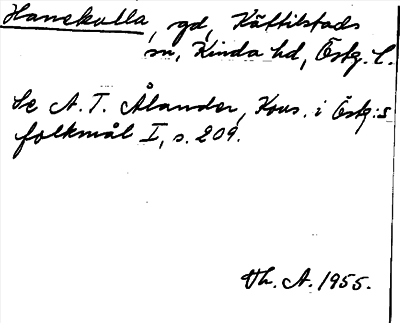 Hanekulla, gd, Kättilstads
sn, Kinda hd, Östg. l.
Se A. T. Ålander, Kons. i Östg:s
folkmål I, s. 209.
Th. A. 1955.